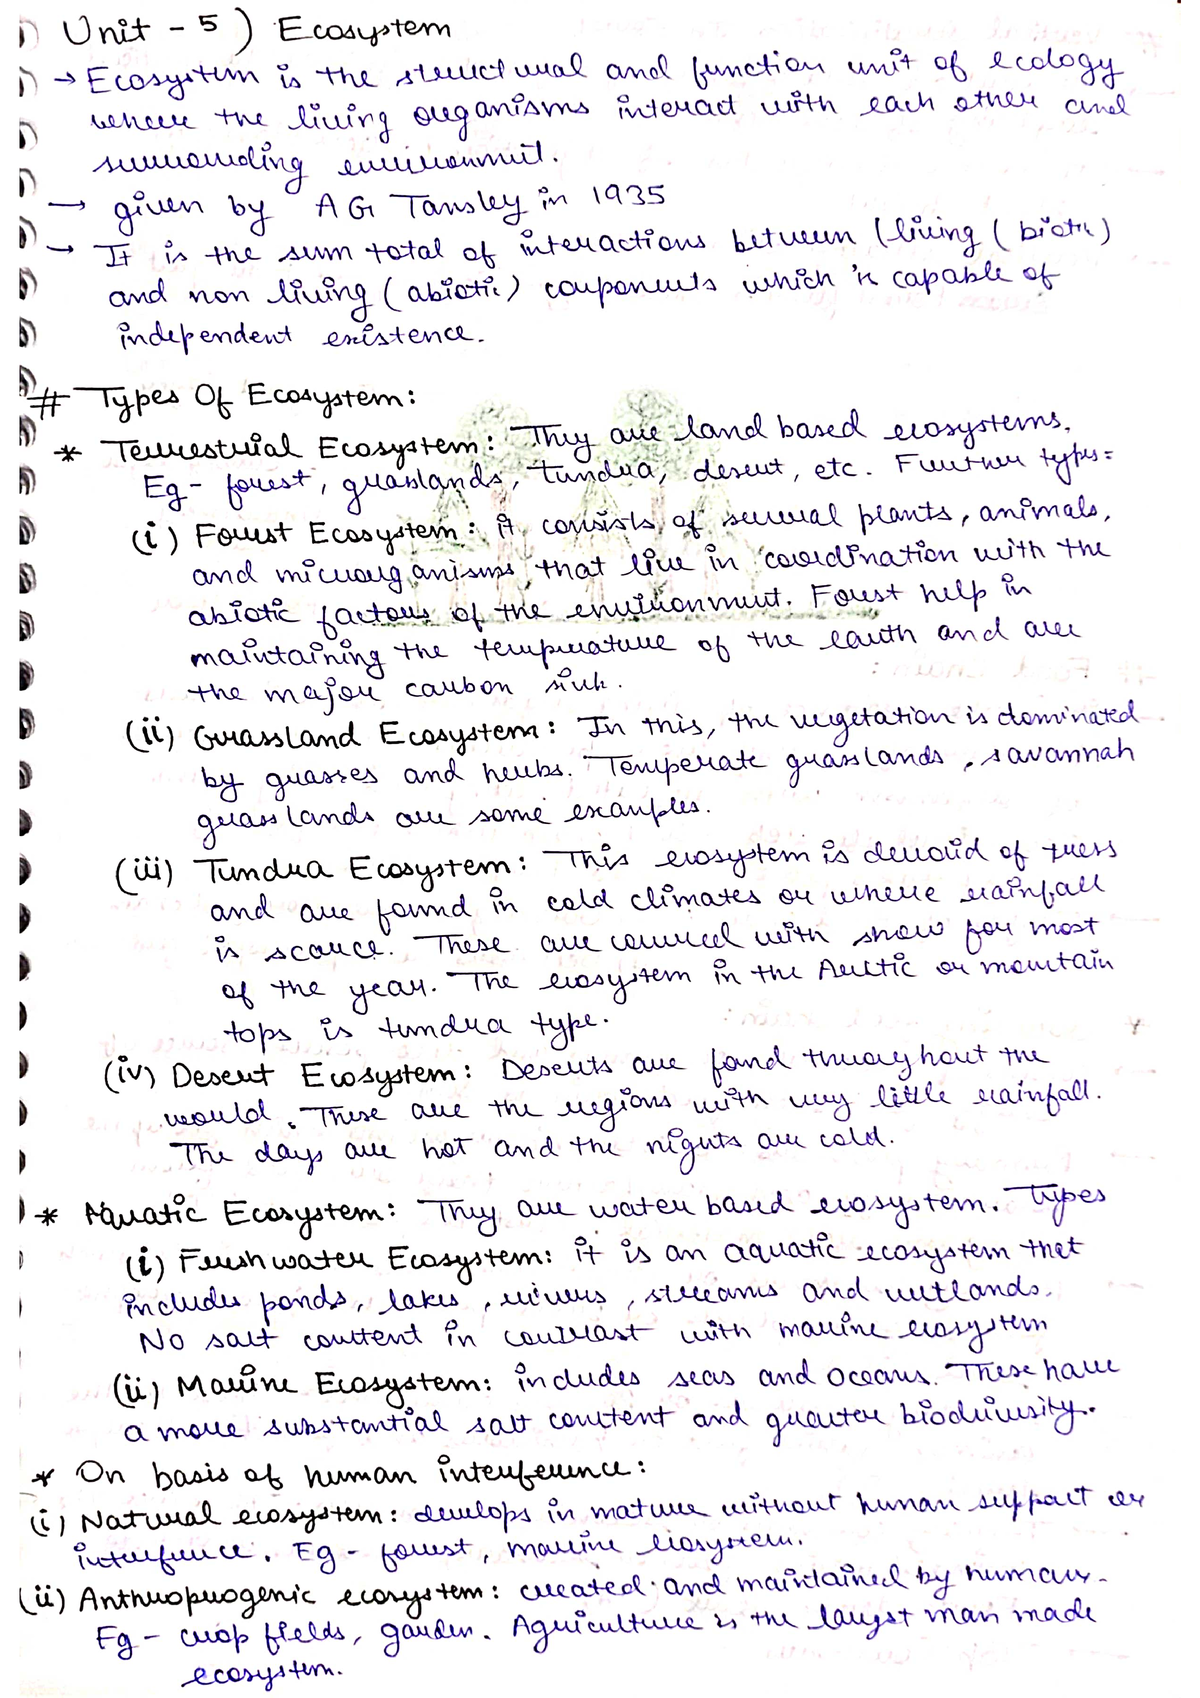 Unit - 5) Ecosystem
→ Ecosystem is the structural and function unit of ecology
where the living organisms interact with each other and
surrounding environment.
→ given by A G Tansley in 1935
→ It is the sum total of interactions between (living (biotic)
and non living (abiotic) components which is capable of
independent existence.
# Types Of Ecosystem:
* Terrestrial Ecosystem: They are land based ecosystems.
Eg - forest, grasslands, tundra, desert, etc. Further types=
(i) Forest Ecosystem: it consists of several plants, animals,
and microorganisms that live in coordination with the
abiotic factors of the environment. Forest help in
maintaining the temperature of the earth and are
the major carbon sink.
(ii) Grassland Ecosystem: In this, the vegetation is dominated
by grasses and herbs. Temperate grasslands, savannah
grasslands are some examples.
(iii) Tundra Ecosystem: This ecosystem is devoid of trees
and are found in cold climates or where rainfall
is scarce. These are covered with snow for most
of the year. The ecosystem in the Arctic or mountain
tops is tundra type.
(iv) Desert Ecosystem: Deserts are fond throughout the
world. These are the regions with very little rainfall.
The days are hot and the nights are cold.
* Aquatic Ecosystem: They are water based ecosystem. Types
(i) Freshwater Ecosystem: it is an aquatic ecosystem that
includes ponds, lakes, rivers, streams and wetlands.
No salt content in contrast with marine ecosystem
(ii) Marine Ecosystem: includes seas and oceans. These have
a more substantial salt content and greater biodiversity.
* On basis of human interference:
(i) Natural ecosystem: develops in nature without human support or
interference. Eg - forest, marine ecosystem.
(ii) Anthropogenic ecosystem: created and maintained by humans.
Eg - crop fields, garden. Agriculture is the largest man made
ecosystem.